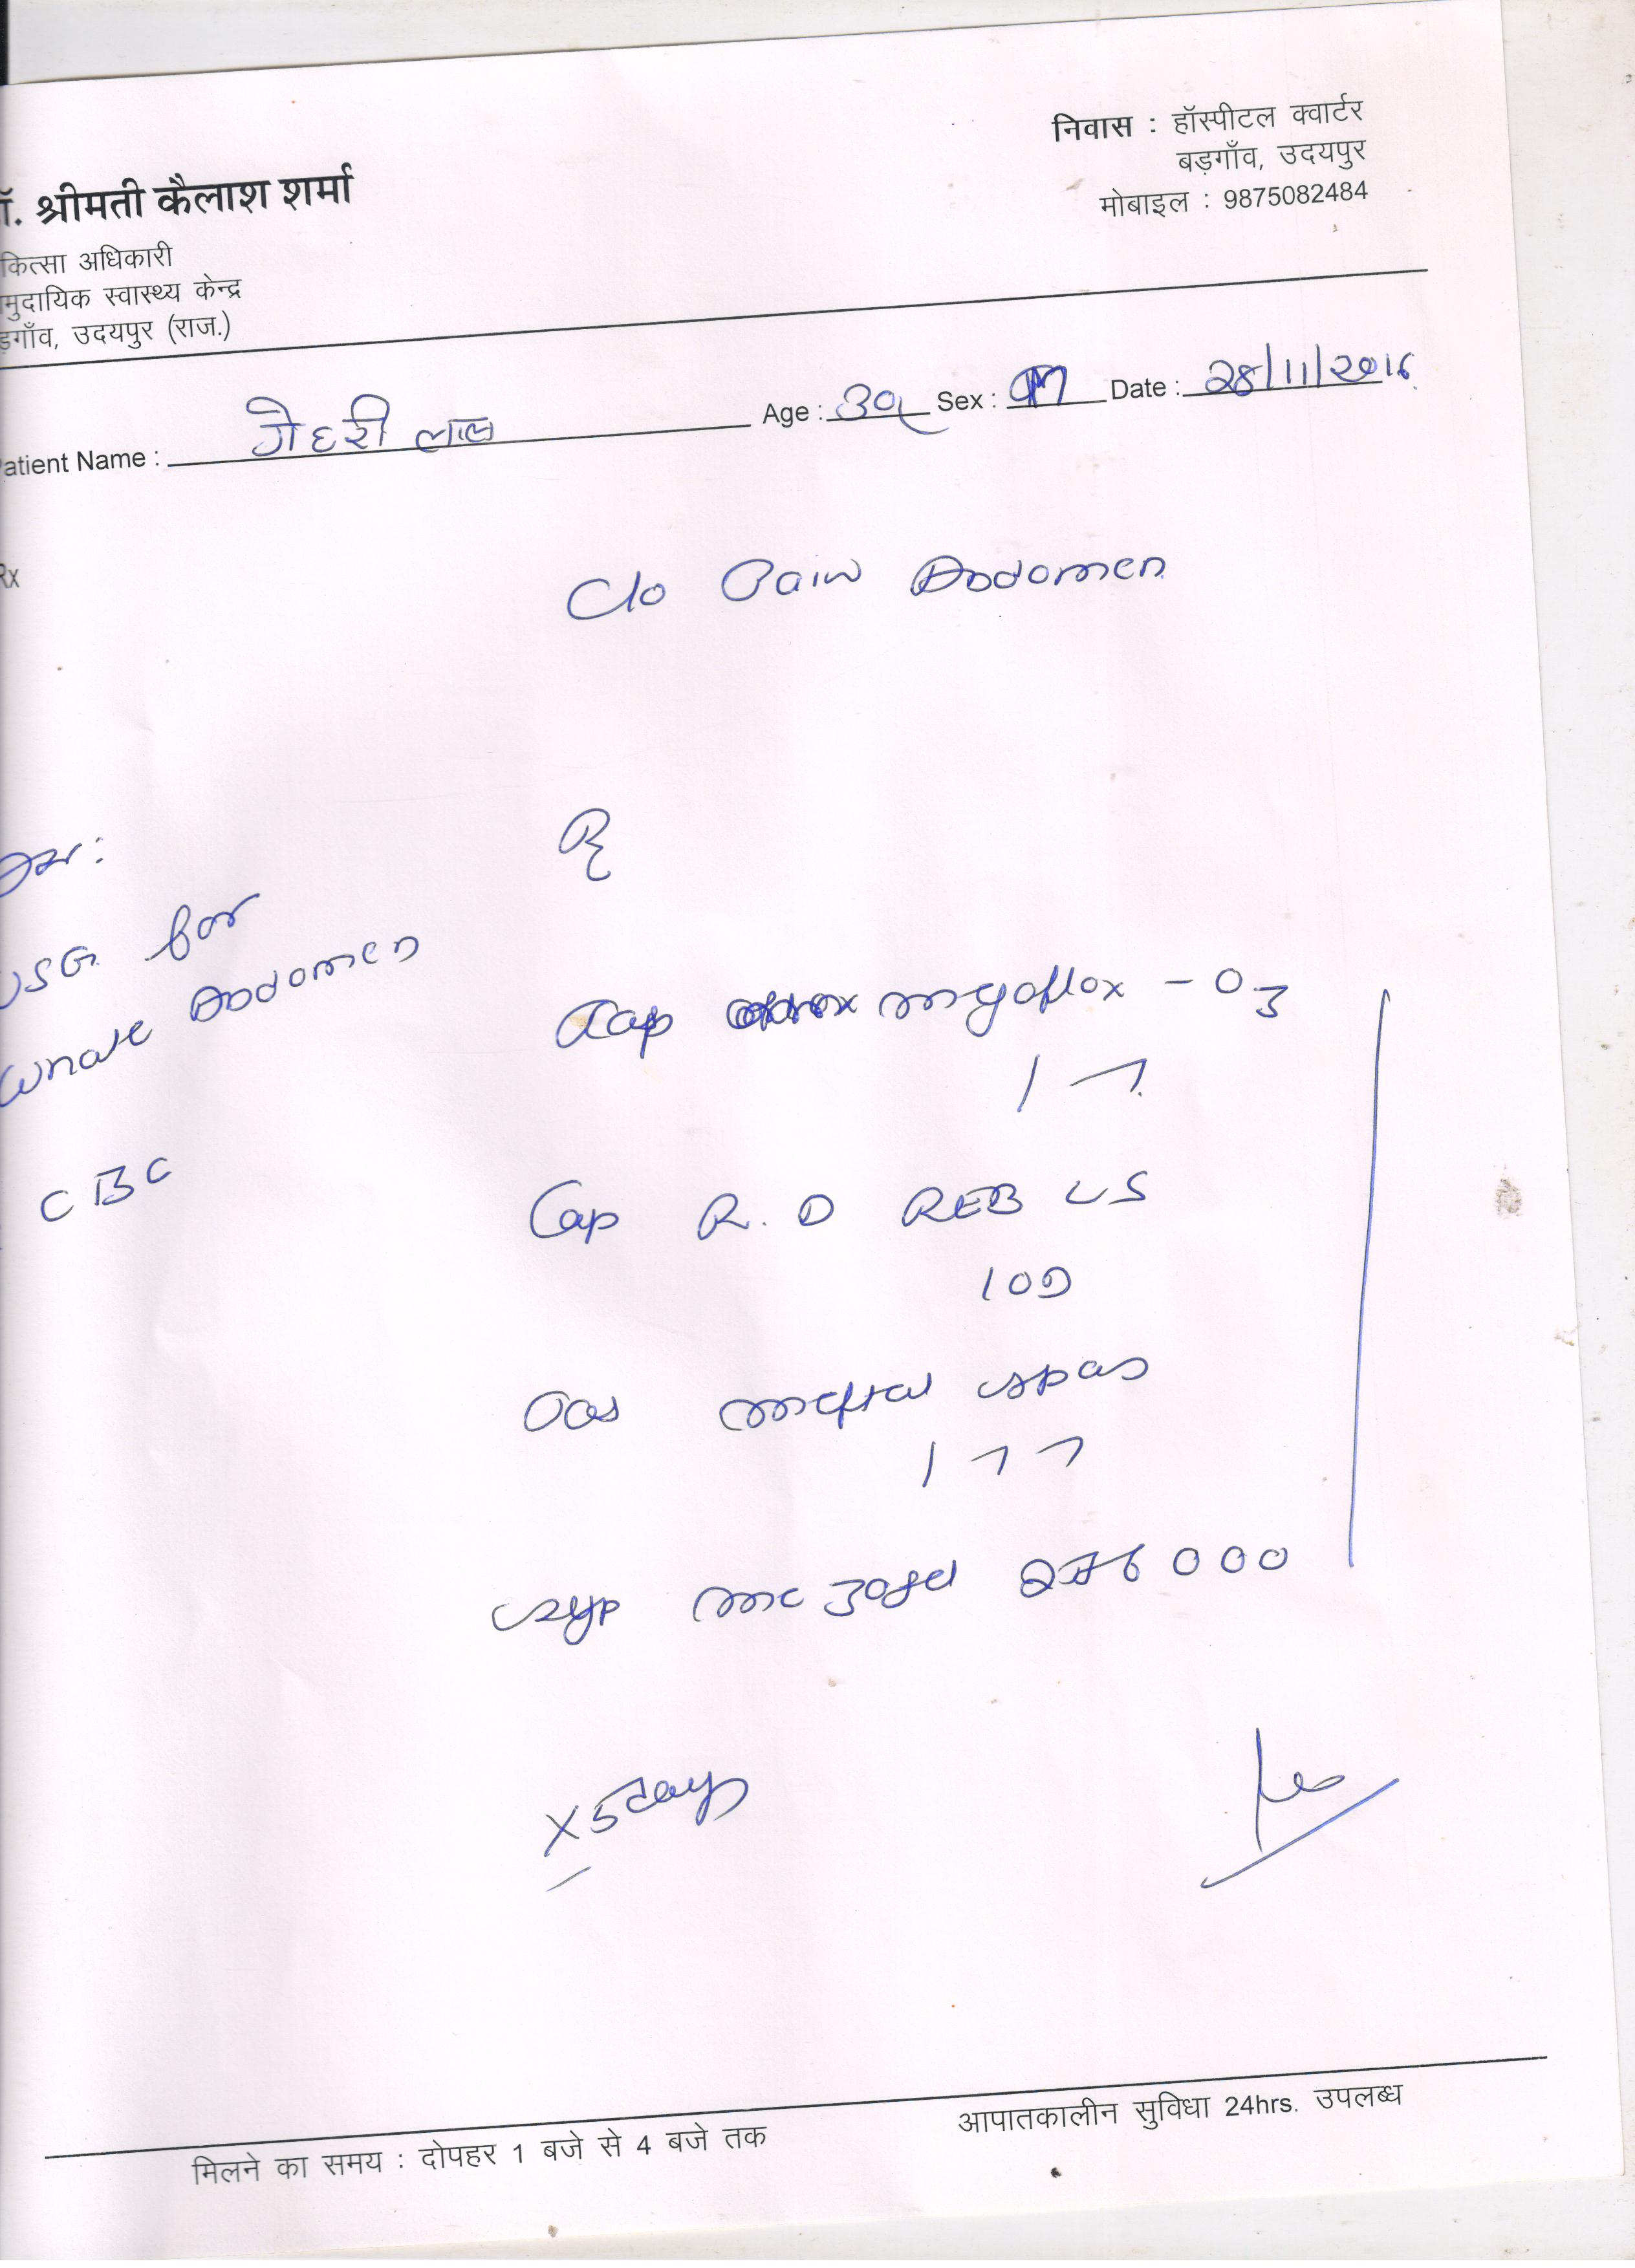 निवास : हॉस्पीटल क्वार्टर
बड़गाँव, उदयपुर
मोबाइल : 9875082484
ॉ. श्रीमती कैलाश शर्मा
कित्सा अधिकारी
मुदायिक स्वास्थ्य केन्द्र
ड़गाँव, उदयपुर (राज.)
atient Name : गेहरी लाल Age : Sex : M Date : 28/11/2016
Rx
C/o Pain Abdomen
Adv:
USG for
whole Abdomen
CBC
Rx
myoflox - OZ
1 -7
Cap R.D REB LS
1 OD
Tab meftal spas
1 7 7
syp
x 5 days
मिलने का समय : दोपहर 1 बजे से 4 बजे तक
आपातकालीन सुविधा 24hrs. उपलब्ध